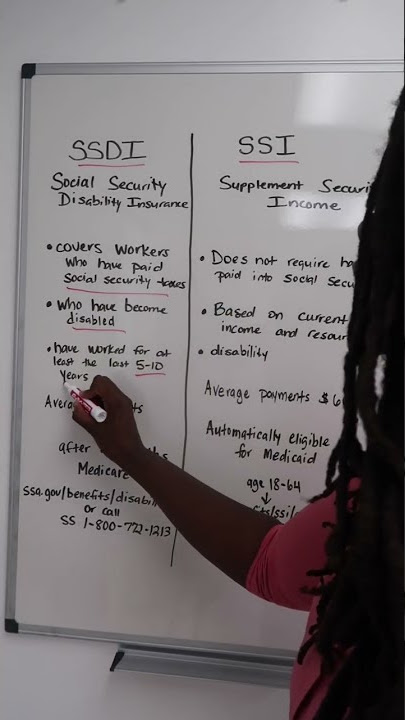 SSDI
Social Security
Disability Insurance
• covers workers
who have paid
social security taxes
• who have become
disabled
• have worked for at
least the last 5-10
years
after
Medicare
ssa.gov/benefits/
or call
SS 1-800-772-1213
SSI
Supplement
Income
• Does not require
paid into social
• Based on current
income and
• disability
Average payments $
Automatically eligible
for Medicaid
age 18-64
↓